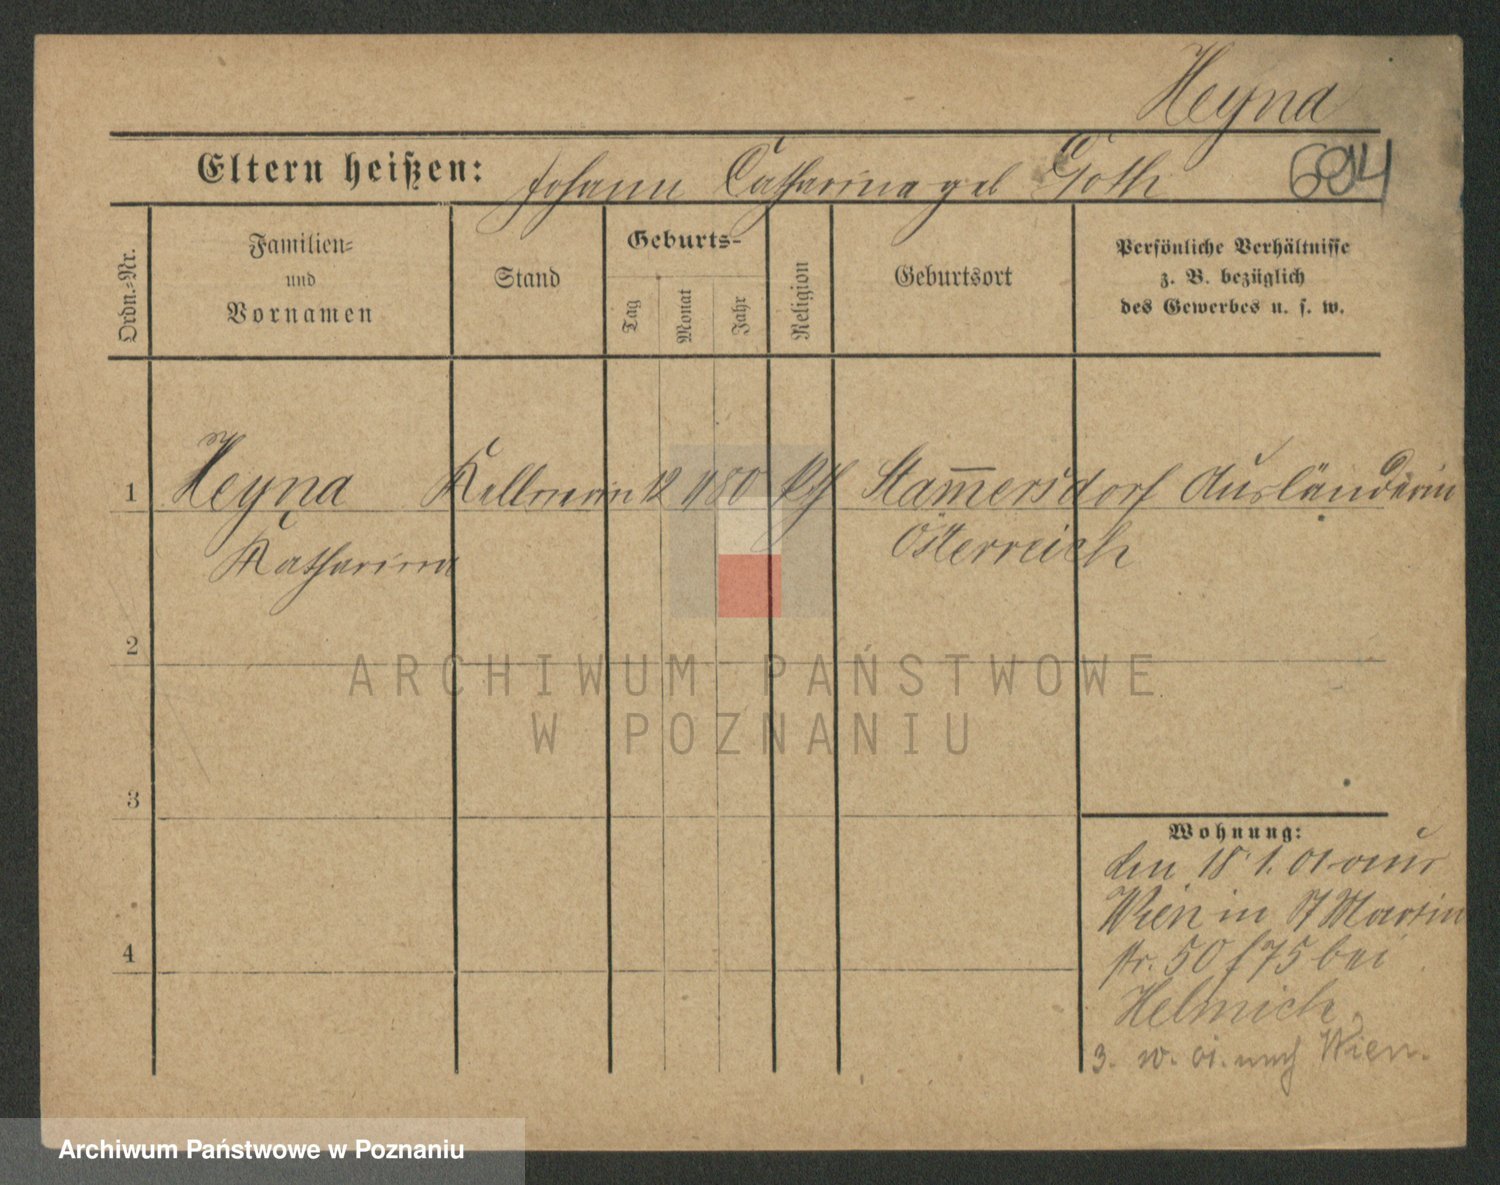 Heyna
Eltern heißen: Johann Catharina geb Goth
6014
Ordn.-Nr.
Familien-
und
Vornamen
Stand
Geburts-
Tag
Monat
Jahr
Religion
Geburtsort
Persönliche Verhältnisse
z. B. bezüglich
des Gewerbes u. s. w.
1 Heyna Kellnerin 12 11 80 Stammersdorf Ausländerin
Katharina Österreich
2
ARCHIWUM PAŃSTWOWE
W POZNANIU
3
Wohnung:
den 18 1. 01 aus
Wien in St Martin
str. 50 f 75 bei
4
Helmich
3. 01. nach Wien.
Archiwum Państwowe w Poznaniu